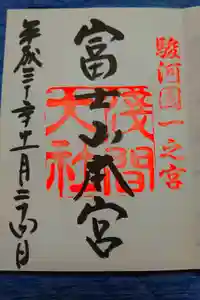 駿河國一之宮
富士山本宮
淺間
大社
平成三十年十一月二十四日